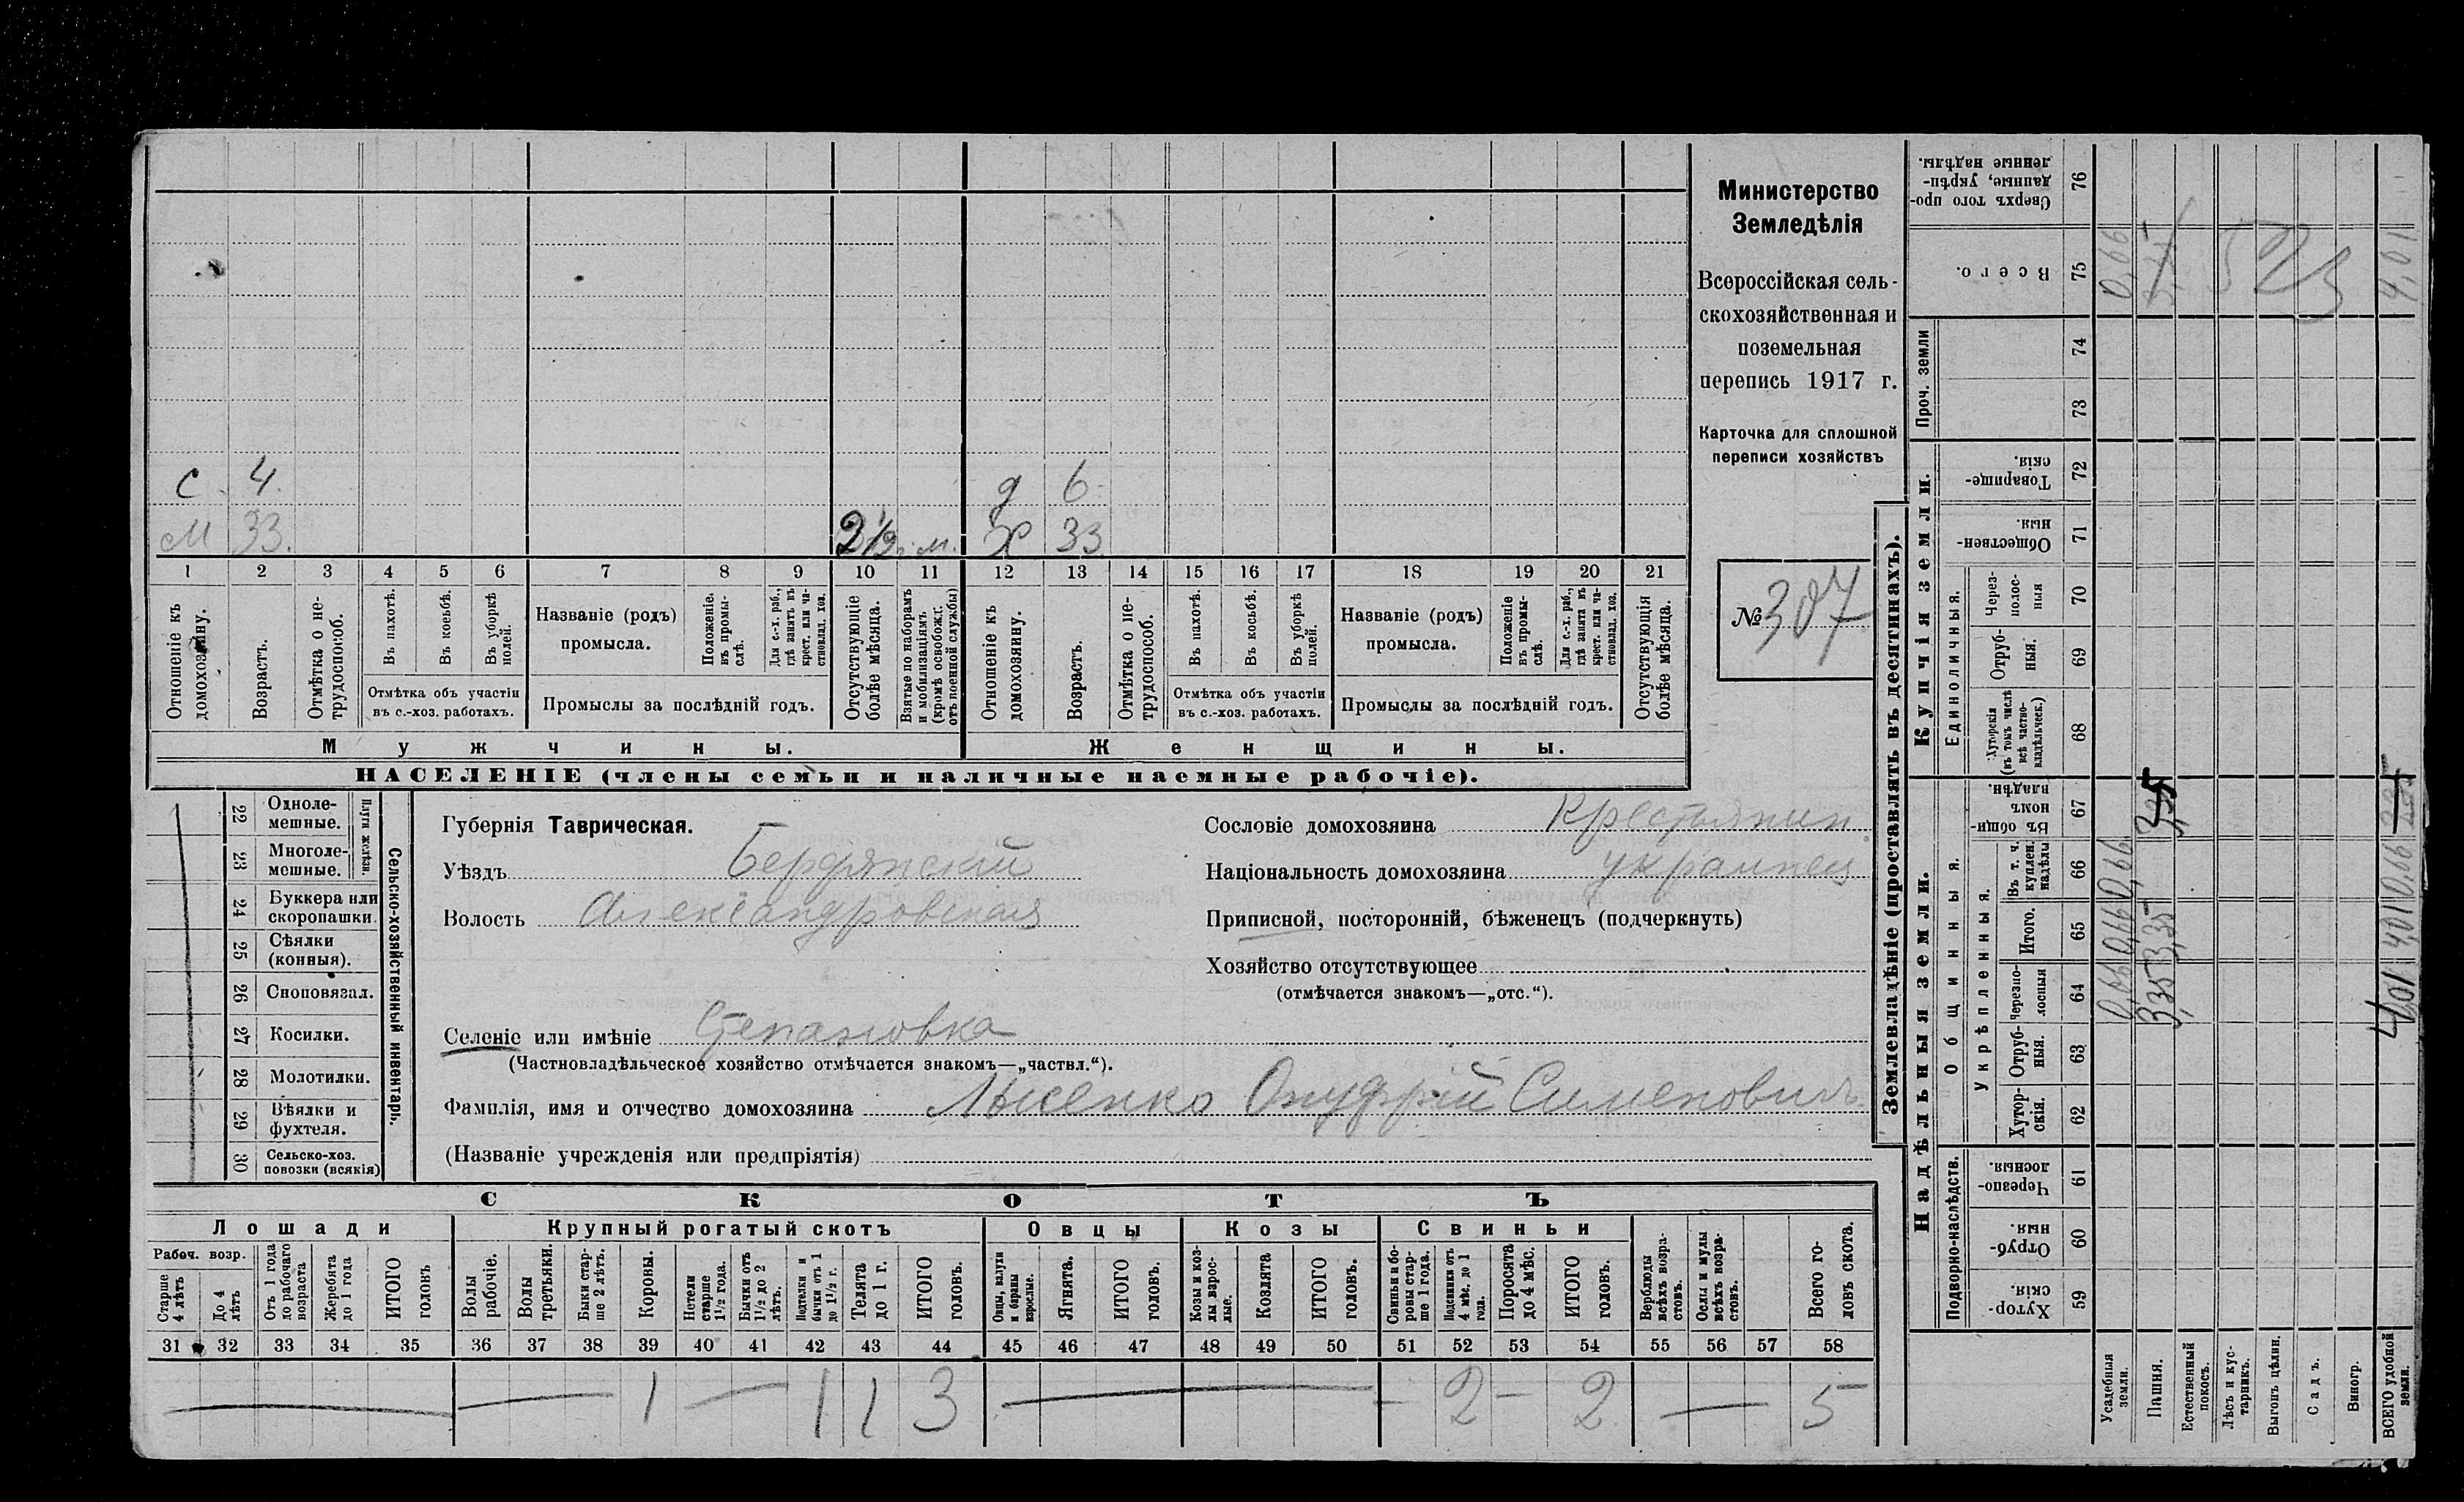 с 4 д 6
м 33. 2½ г. м. Ж 33
1 2 3 4 5 6 7 8 9 10 11 12 13 14 15 16 17 18 19 20 21
Отношеніе къ домохозяину.
Возрастъ.
Отмѣтка о не-трудоспособ.
Въ пахотѣ.
Въ косьбѣ.
Въ уборкѣ полей.
Отмѣтка объ участіи
въ с.-хоз. работахъ.
Названіе (родъ)
промысла.
Положеніе. въ промы-слѣ.
Для с.-х. раб., гдѣ занятъ въ крест. или ча-стновлад. хоз.
Промыслы за послѣдній годъ.
Отсутствующіе болѣе мѣсяца.
Взятые по наборамъ и мобилизаціямъ (кромѣ освобожд. отъ военной службы)
Отношеніе къ домохозяину.
Возрастъ.
Отмѣтка о не-трудоспособ.
Въ пахотѣ.
Въ косьбѣ.
Въ уборкѣ полей.
Отмѣтка объ участіи
въ с.-хоз. работахъ.
Названіе (родъ)
промысла.
Положеніе въ промы-слѣ.
Для с.-х. раб., гдѣ занята въ крест. или ча-стновлад. хоз.
Промыслы за послѣдній годъ.
Отсутствующія болѣе мѣсяца.
Мужчины. Женщины.
НАСЕЛЕНІЕ (члены семьи и наличные наемные рабочіе).
Министерство
Земледѣлія
Всероссійская сель-
скохозяйственная и
поземельная
перепись 1917 г.
Карточка для сплошной
переписи хозяйствъ
№ 307
22 Одноле-
мешные.
23 Многоле-
мешные.
Плуги желѣзн.
24 Буккера или
скоропашки.
25 Сѣялки
(конныя).
26 Сноповязал.
27 Косилки.
28 Молотилки.
29 Вѣялки и
фухтеля.
30 Сельско-хоз.
повозки (всякія)
Сельско-хозяйственный инвентарь.
Губернія Таврическая.
Уѣздъ Бердянскій
Волость Александровская
Селеніе или имѣніе Степановка
(Частновладѣльческое хозяйство отмѣчается знакомъ—„частвл.“).
Фамилія, имя и отчество домохозяина Лысенко Онуфрій Сименовичъ
(Названіе учрежденія или предпріятія)
Сословіе домохозяина крестьянин.
Національность домохозяина украинец
Приписной, посторонній, бѣженецъ (подчеркнуть)
Хозяйство отсутствующее
(отмѣчается знакомъ—„отс.“).
СКОТЪ
Лошади Крупный рогатый скотъ Овцы Козы Свиньи
Рабоч. возр.
Старше 4 лѣтъ
До 4 лѣтъ
Отъ 1 года до рабочаго возраста
Жеребята до 1 года
ИТОГО головъ
Волы рабочіе.
Волы третьяки.
Быки стар-ше 2 лѣтъ.
Коровы.
Нетели старше 1½ года.
Бычки отъ 1½ до 2 лѣтъ.
Подтелки и бычки отъ 1 до 1½ г.
Телята до 1 г.
ИТОГО головъ.
Овцы, валухи и бараны взрослые.
Ягнята.
ИТОГО головъ.
Козы и коз-лы взрос-лые.
Козлята
ИТОГО головъ.
Свиньи и бо-ровы стар-ше 1 года.
Подсвинки отъ 4 мѣс. до 1 года.
Поросята до 4 мѣс.
ИТОГО головъ.
Верблюды всѣхъ возра-стовъ.
Ослы и мулы всѣхъ возра-стовъ.
Всего го-ловъ скота.
31 32 33 34 35 36 37 38 39 40 41 42 43 44 45 46 47 48 49 50 51 52 53 54 55 56 57 58
— — 1 — 1 1 3 — - 2 - 2 — 5
Землевладѣніе (проставлять въ десятинахъ).
Надѣльныя земли. Купчія земли. Проч. земли
Подворно-наслѣдств.
Общинныя.
Укрѣпленныя.
Единоличныя.
Хутор-скія. 59
Отруб-ныя. 60
Черезпо-лосныя. 61
Хутор-скія. 62
Отруб-ныя. 63
Черезпо-лосныя 64
Итого. 65
Въ т. ч. куплен. надѣлы 66
Въ общин-номъ владѣн. 67
Хуторскія (въ томъ числѣ всѣ частно-владѣльческ.) 68
Отруб-ныя. 69
Через-полос-ныя 70
Обществен-ныя. 71
Товарище-скія. 72
73
74
Всего. 75
Сверхъ того про-данные, укрѣп-ленные надѣлы. 76
Усадебныя земли. 0,66 0,66 0,66 0,66
Пашня. 3,35 3,35
Естественный покосъ.
Лѣсъ и кус-тарникъ.
Выгонъ цѣлин.
Садъ.
Виногр.
ВСЕГО удобной земли. 4,01 4,01 0,66 4,01